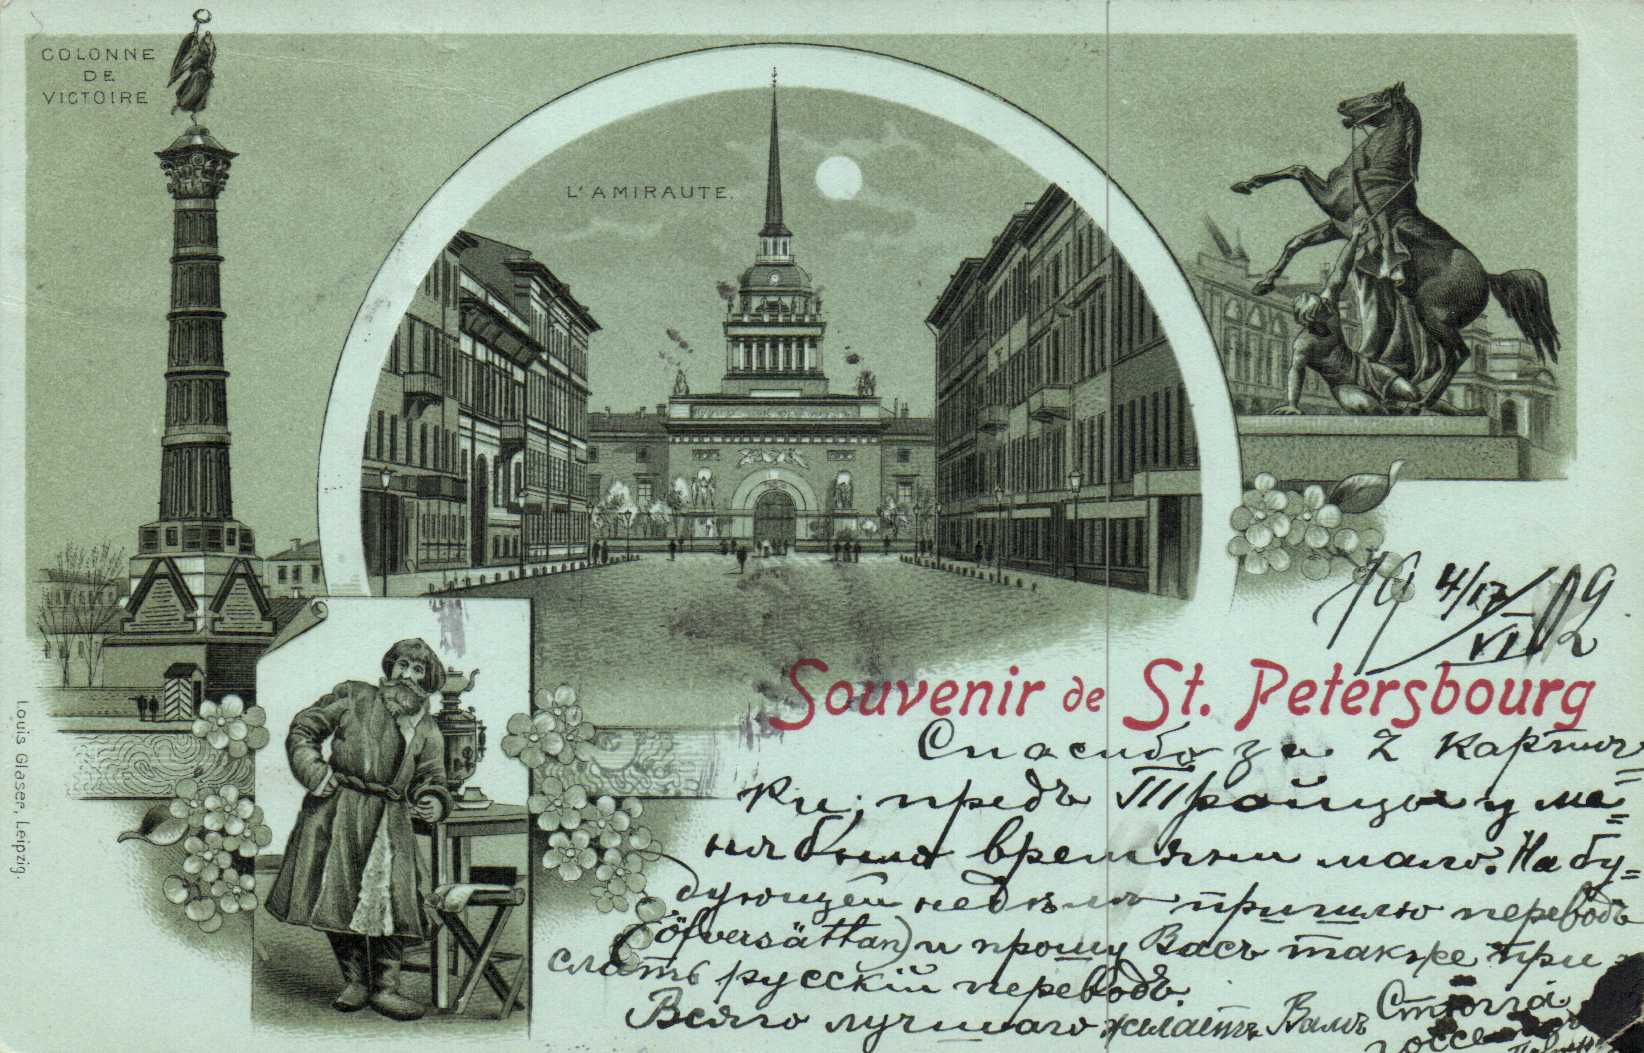 COLONNE
DE
VICTOIRE
L'AMIRAUTE.
Louis Glaser, Leipzig.
19 4/17 VI 02
Souvenir de St. Petersbourg
Спасибо за 2 картич
ки; предъ Тройцы у ме=
ня было времяни мало. На бу=
дующей недѣлѣ пришлю переводъ
(öfversättan) и прошу Васъ также при=
слать русскій переводъ.
Всяго лучшаго желаетъ Вамъ